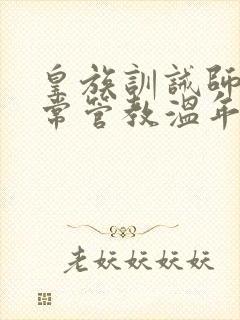 皇族訓誡師
常管教溫年
老妖妖妖妖